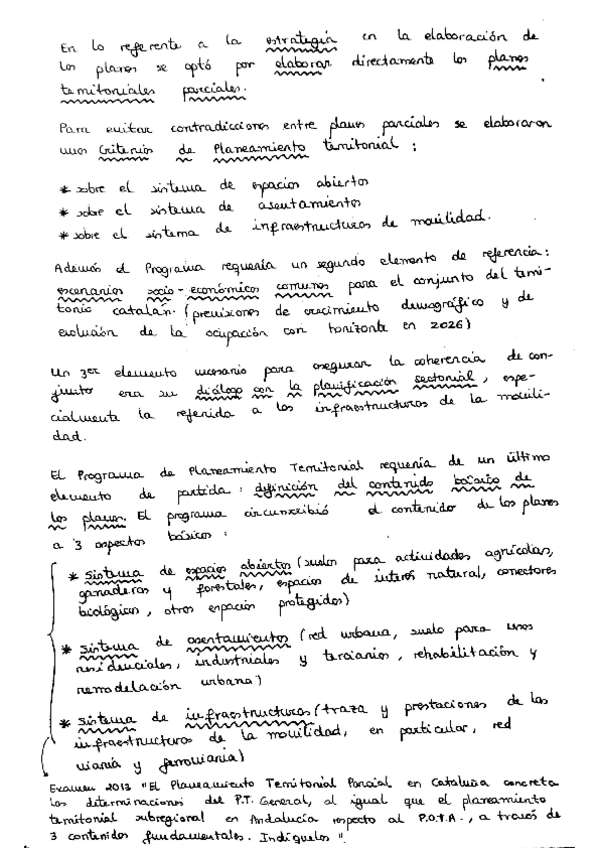 En lo referente a la estrategia en la elaboración de
los planes se optó por elaborar directamente los planes
territoriales parciales.
Para evitar contradicciones entre planes parciales se elaboraron
unos Criterios de Planeamiento territorial :
* sobre el sistema de espacios abiertos
* sobre el sistema de asentamientos
* sobre el sistema de infraestructuras de movilidad.
Además el Programa requería un segundo elemento de referencia:
escenarios socio-económicos comunes para el conjunto del terri-
torio catalán. (previsiones de crecimiento demográfico y de
evolución de la ocupación con horizonte en 2026)
Un 3er elemento necesario para asegurar la coherencia de con-
junto era su diálogo con la planificación sectorial, espe-
cialmente la referida a las infraestructuras de la movili-
dad.
El Programa de Planeamiento Territorial requería de un último
elemento de partida: definición del contenido básico de
los planes. El programa circunscribió el contenido de los planes
a 3 aspectos básicos :
* Sistema de espacios abiertos (suelos para actividades agrícolas,
ganaderas y forestales, espacios de interés natural, conectores
biológicos, otros espacios protegidos)
* Sistema de asentamientos (red urbana, suelo para usos
residenciales, industriales y terciarios, rehabilitación y
remodelación urbana)
* Sistema de infraestructuras (traza y prestaciones de las
infraestructuras de la movilidad, en particular, red
viaria y ferroviaria)
Examen 2013 "El Planeamiento Territorial Parcial en Cataluña concreta
las determinaciones del P.T. General, al igual que el planeamiento
territorial subregional en Andalucía respecto al P.O.T.A., a través de
3 contenidos fundamentales. Indíquelos".